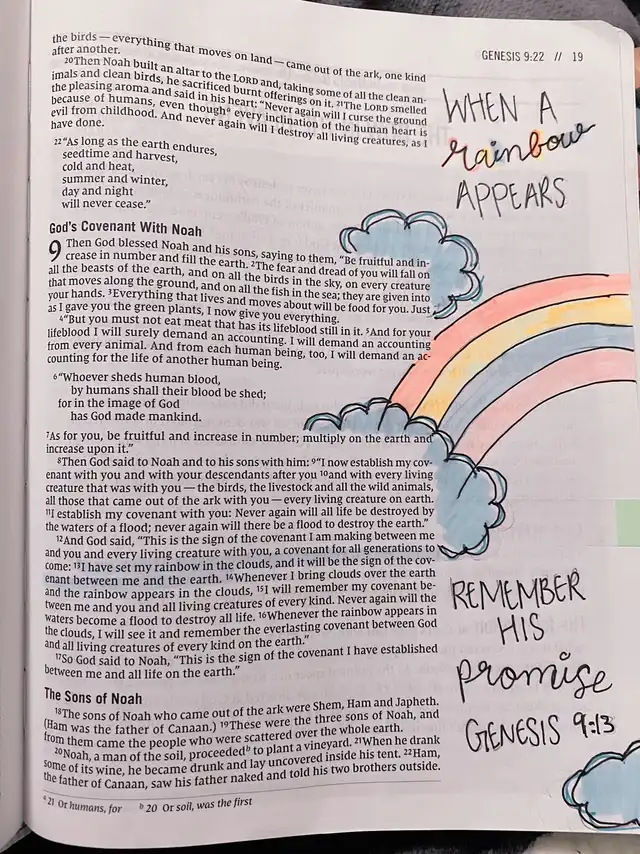 GENESIS 9:22 // 19
the birds — everything that moves on land — came out of the ark, one kind
after another.
20Then Noah built an altar to the LORD and, taking some of all the clean an-
imals and clean birds, he sacrificed burnt offerings on it. 21The LORD smelled
the pleasing aroma and said in his heart: “Never again will I curse the ground
because of humans, even though a every inclination of the human heart is
evil from childhood. And never again will I destroy all living creatures, as I
have done.
22“As long as the earth endures,
seedtime and harvest,
cold and heat,
summer and winter,
day and night
will never cease.”
God’s Covenant With Noah
9 Then God blessed Noah and his sons, saying to them, “Be fruitful and in-
crease in number and fill the earth. 2The fear and dread of you will fall on
all the beasts of the earth, and on all the birds in the sky, on every creature
that moves along the ground, and on all the fish in the sea; they are given into
your hands. 3Everything that lives and moves about will be food for you. Just
as I gave you the green plants, I now give you everything.
4“But you must not eat meat that has its lifeblood still in it. 5And for your
lifeblood I will surely demand an accounting. I will demand an accounting
from every animal. And from each human being, too, I will demand an ac-
counting for the life of another human being.
6“Whoever sheds human blood,
by humans shall their blood be shed;
for in the image of God
has God made mankind.
7As for you, be fruitful and increase in number; multiply on the earth and
increase upon it.”
8Then God said to Noah and to his sons with him: 9“I now establish my cov-
enant with you and with your descendants after you 10and with every living
creature that was with you — the birds, the livestock and all the wild animals,
all those that came out of the ark with you — every living creature on earth.
11I establish my covenant with you: Never again will all life be destroyed by
the waters of a flood; never again will there be a flood to destroy the earth.”
12And God said, “This is the sign of the covenant I am making between me
and you and every living creature with you, a covenant for all generations to
come: 13I have set my rainbow in the clouds, and it will be the sign of the cov-
enant between me and the earth. 14Whenever I bring clouds over the earth
and the rainbow appears in the clouds, 15I will remember my covenant be-
tween me and you and all living creatures of every kind. Never again will the
waters become a flood to destroy all life. 16Whenever the rainbow appears in
the clouds, I will see it and remember the everlasting covenant between God
and all living creatures of every kind on the earth.”
17So God said to Noah, “This is the sign of the covenant I have established
between me and all life on the earth.”
The Sons of Noah
18The sons of Noah who came out of the ark were Shem, Ham and Japheth.
(Ham was the father of Canaan.) 19These were the three sons of Noah, and
from them came the people who were scattered over the whole earth.
20Noah, a man of the soil, proceeded b to plant a vineyard. 21When he drank
some of its wine, he became drunk and lay uncovered inside his tent. 22Ham,
the father of Canaan, saw his father naked and told his two brothers outside.
a 21 Or humans, for b 20 Or soil, was the first
WHEN A
rainbow
APPEARS
REMEMBER
HIS
promise
GENESIS 9:13